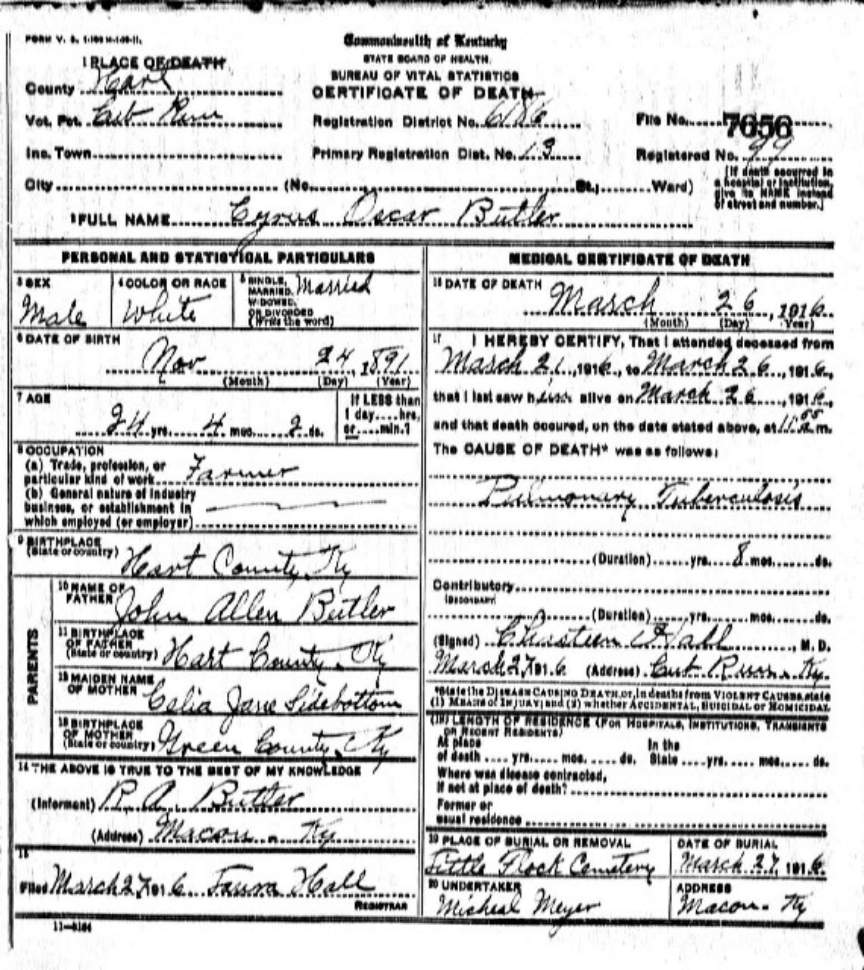 FORM V. S. 1-
Commonwealth of Kentucky
STATE BOARD OF HEALTH.
BUREAU OF VITAL STATISTICS
CERTIFICATE OF DEATH
1 PLACE OF DEATH
County Hart
Vot. Pct. Cub Run
Registration District No. 6186
File No. 7656
Inc. Town
Primary Registration Dist. No. 13
Registered No. 99
City (No. St.; Ward)
[If death occurred in a hospital or institution, give its NAME instead of street and number.]
2 FULL NAME Cyrus Oscar Butler
PERSONAL AND STATISTICAL PARTICULARS
3 SEX
Male
4 COLOR OR RACE
White
5 SINGLE, MARRIED, WIDOWED, OR DIVORCED (Write the word)
Married
6 DATE OF BIRTH
Nov 24, 1891
(Month) (Day) (Year)
7 AGE
24 yrs. 4 mos. 2 ds.
If LESS than
1 day....hrs.
or....min.?
8 OCCUPATION
(a) Trade, profession, or
particular kind of work Farmer
(b) General nature of industry
business, or establishment in
which employed (or employer)
9 BIRTHPLACE
(State or country) Hart County, Ky
PARENTS
10 NAME OF
FATHER John Allen Butler
11 BIRTHPLACE
OF FATHER
(State or country) Hart County, Ky
12 MAIDEN NAME
OF MOTHER Celia Jane Sidebottom
13 BIRTHPLACE
OF MOTHER
(State or country) Green County, Ky
14 THE ABOVE IS TRUE TO THE BEST OF MY KNOWLEDGE
(Informant) R. A. Butler
(Address) Macon - Ky
15
Filed March 27, 1916 Hall
REGISTRAR
11-5184
MEDICAL CERTIFICATE OF DEATH
16 DATE OF DEATH
March 26, 1916
(Month) (Day) Year)
17 I HEREBY CERTIFY, That I attended deceased from
March 21, 1916, to March 26, 1916,
that I last saw him alive on March 26, 1916,
and that death occured, on the date stated above, at 11 m.
The CAUSE OF DEATH* was as follows:
Pulmonary Tuberculosis
(Duration) yrs. 8 mos. ds.
Contributory
(SECONDARY)
(Duration) yrs. mos. ds.
(Signed) Chasteen Hall, M. D.
March 27, 1916 (Address) Cub Run - Ky
*State the DISEASE CAUSING DEATH, or, in deaths from VIOLENT CAUSES, state
(1) MEANS OF INJURY; and (2) whether ACCIDENTAL, SUICIDAL or HOMICIDAL
(18) LENGTH OF RESIDENCE (FOR HOSPITALS, INSTITUTIONS, TRANSIENTS
OR RECENT RESIDENTS)
At place In the
of death yrs. mos. ds. State yrs. mos. ds.
Where was disease contracted,
if not at place of death?
Former or
usual residence
19 PLACE OF BURIAL OR REMOVAL
Little Rock Cemetery
DATE OF BURIAL
March 27, 1916
20 UNDERTAKER
Micheal Meyer
ADDRESS
Macon - Ky